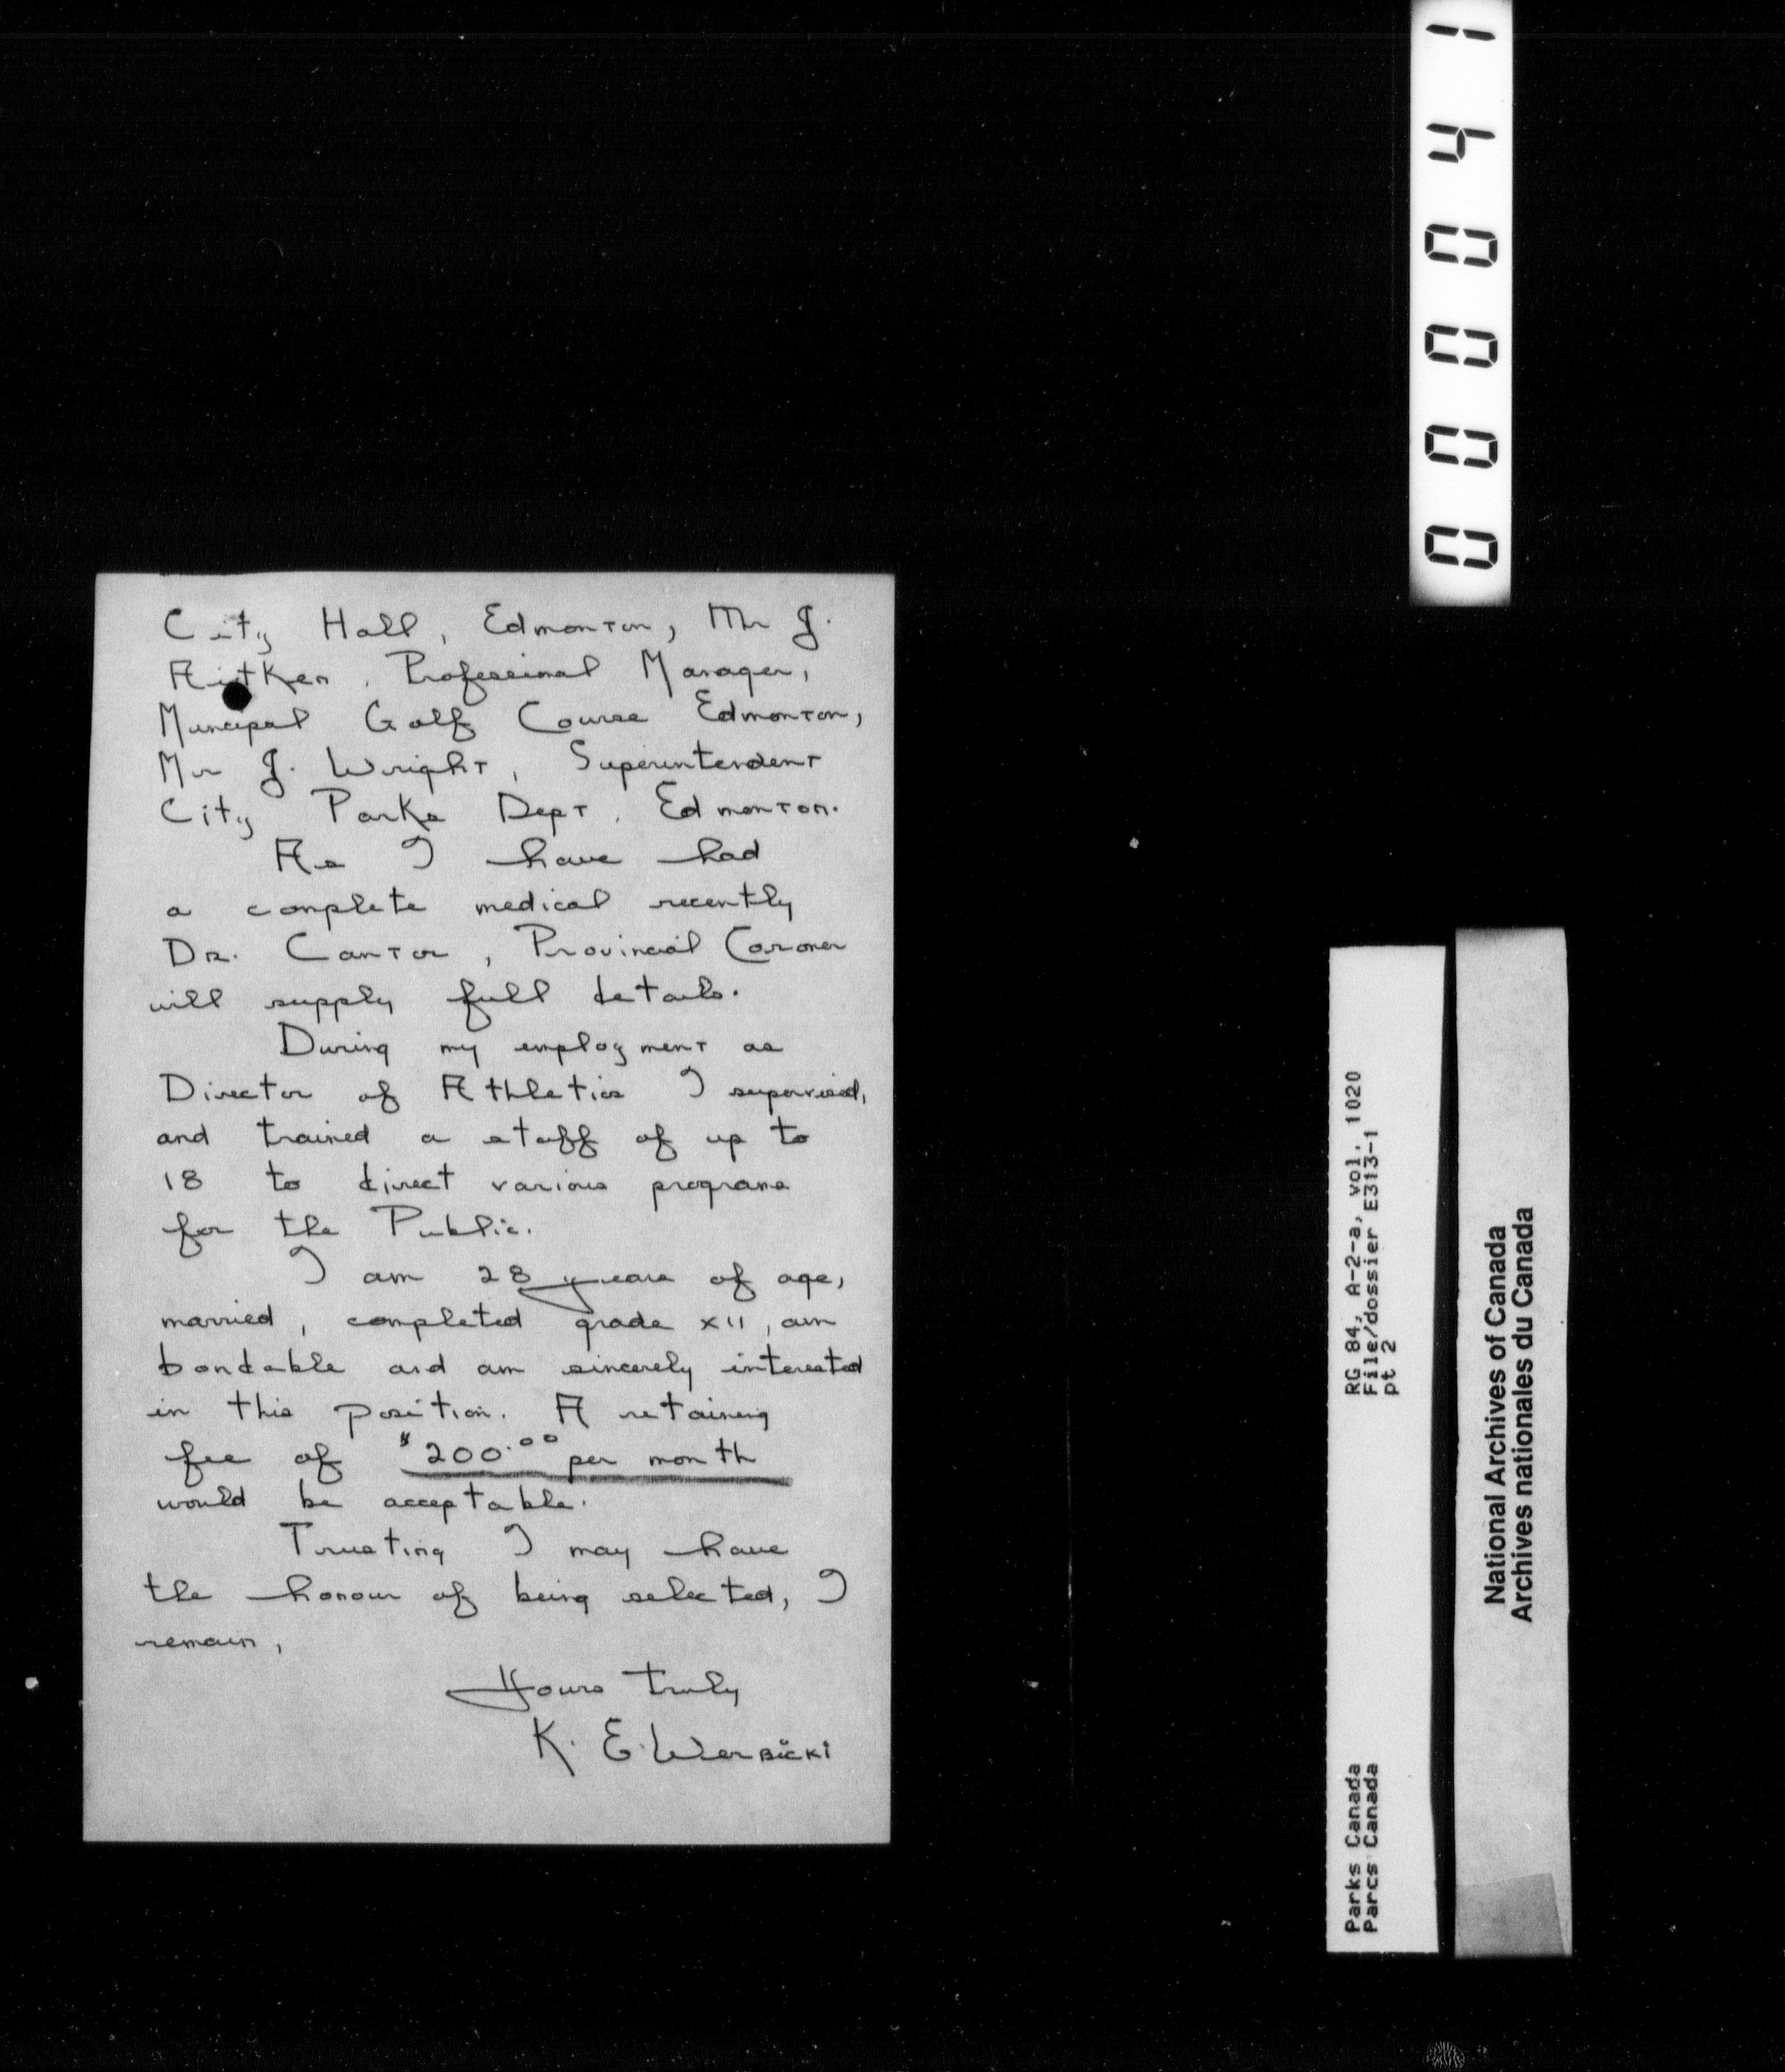 City Hall, Edmonton, Mr J.
Aitken, Professional Manager,
Muncipal Golf Course Edmonton,
Mr J. Wright, Superintendent
City Parks Dept, Edmonton.
As I have had
a complete medical recently
Dr. Cantor, Provincial Coroner
will supply full details.
During my employment as
Director of Athletics I supervised,
and trained a staff of up to
18 to direct various programs
for the Public.
I am 28 years of age,
married, completed grade XII, am
bondable and am sincerely interested
in this position. A retaining
fee of $200.00 per month
would be acceptable.
Trusting I may have
the honour of being selected, I
remain,
Yours truly
K. E. Werbicki
000041
RG 84, A-2-a, vol. 1020
File/dossier E313-1
pt 2
Parks Canada
Parcs Canada
National Archives of Canada
Archives nationales du Canada